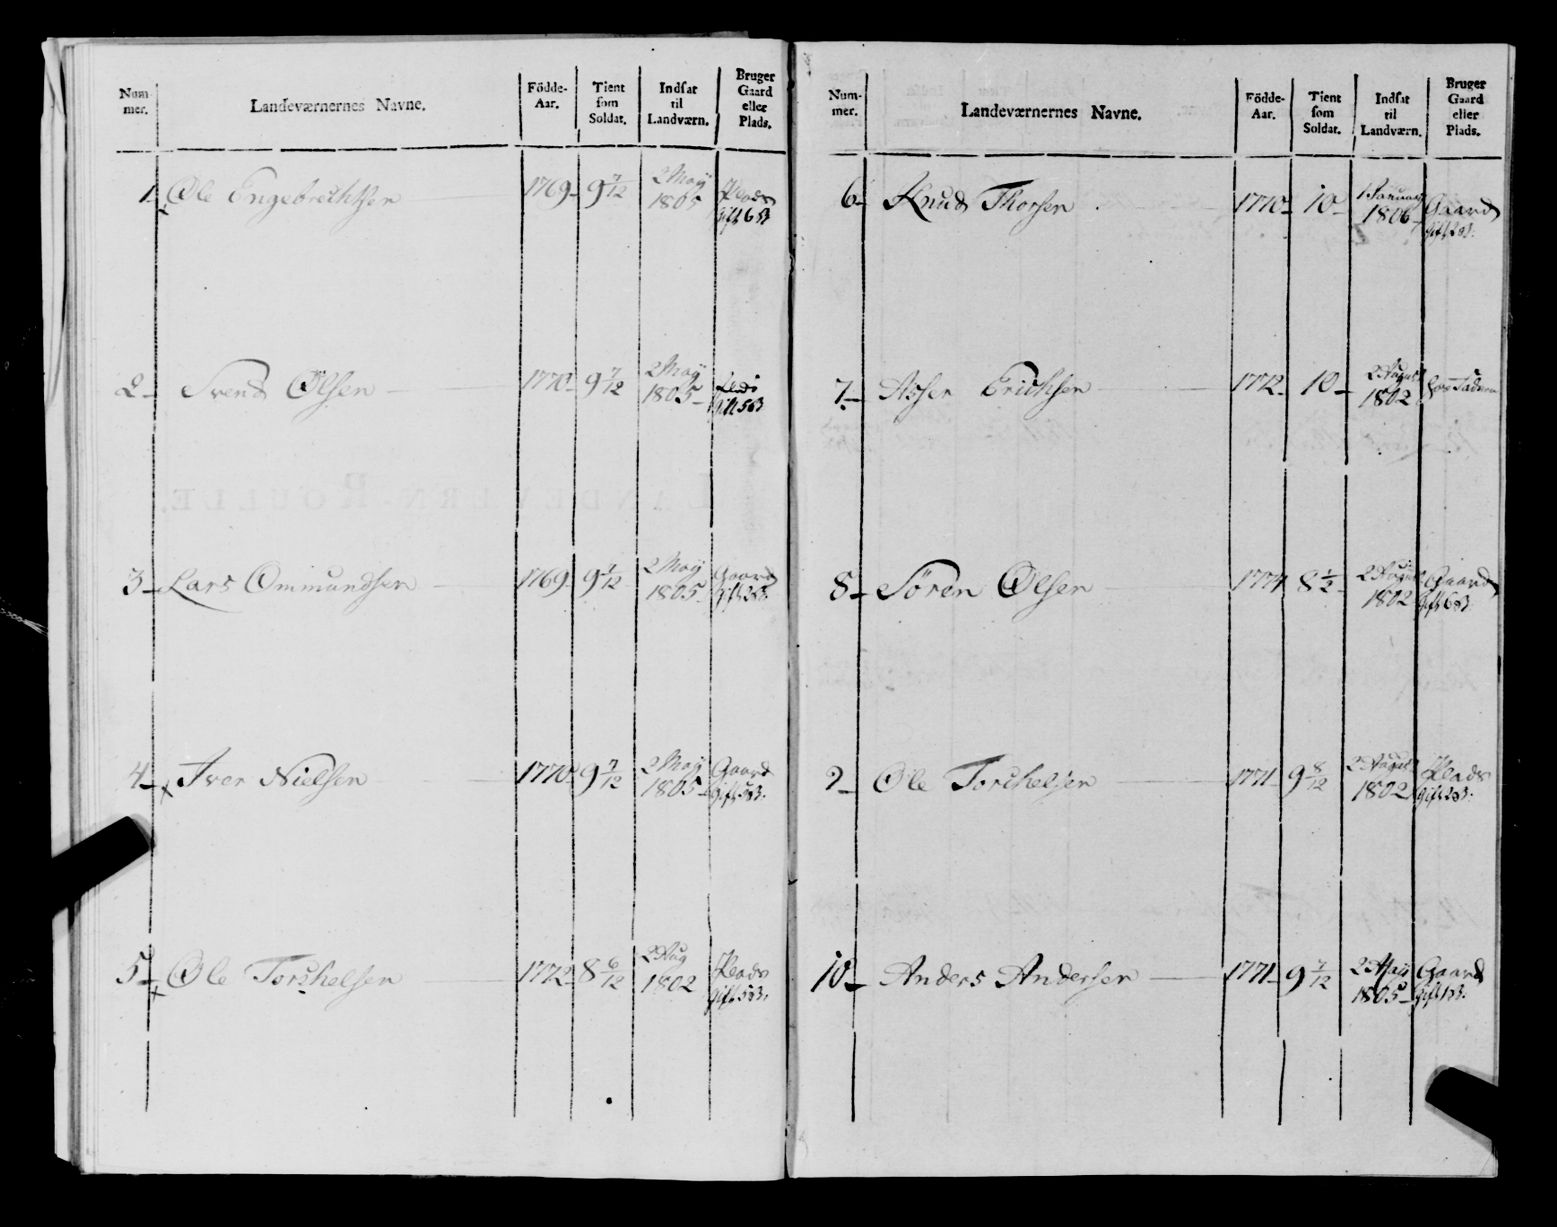 Num-
mer.
Landeværnernes Navne.
Födde-
Aar.
Tient
som
Soldat.
Indsat
til
Landværn.
Bruger
Gaard
eller
Plads.
1. Ole Engebrechtsen 1769- 9 7/12 2 Maÿ
1805 Plads
Gift 6 B
2- Svend Olsen 1770- 9 7/12 2 Maÿ
1805-
Gift 5 B
3- Lars Ommundsen 1769- 9 1/12 2 Maÿ
1805- Gaard
Gift
4- Iver Nielsen 1770- 9 7/12 2 Maÿ
1805- Gaard
Gift 5 B.
5- Ole Torchelsen 1772- 8 6/12 2 Aug
1802 Plads
Gift 5 B.
Num-
mer.
Landeværnernes Navne.
Födde-
Aar.
Tient
som
Soldat.
Indsat
til
Landværn.
Bruger
Gaard
eller
Plads.
6- Knud Thorsen 1770- 10- 1 Januaÿ
1806- Gaard
Gift 2 B.
7- Asser Erichsen 1772- 10- 2 August
1802
8- Sören Olsen 1774 8 1/2- 2 August
1802 Gaard
Gift 6 B
9- Ole Torchelsen 1771- 9 8/12 2 August
1802 Plads
Gift 2 B.
10- Anders Andersen 1771- 9 7/12 2 Maÿ
1805- Gaard
Gift 1 B.